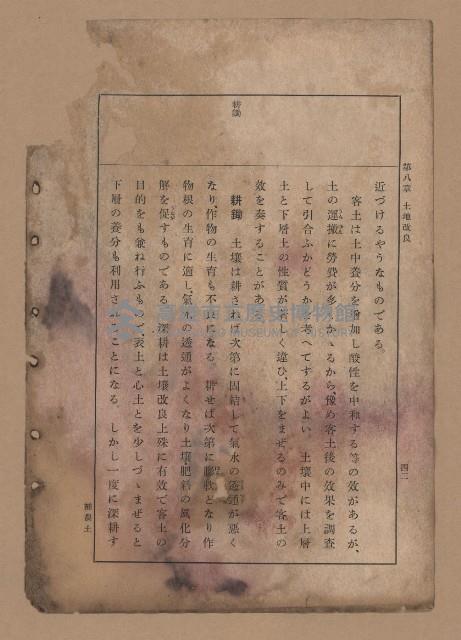 第八章　土地改良
四二
耕鋤
近づけるやうなものである。
客土は土中養分を增加し酸性を中和する等の效があるが、
土の運搬に勞費が多くかゝるから、豫め客土後の效果を調査
して引合ふかどうかを考へてするがよい。土壤中には上層
土と下層土の性質が著しく違ひ上下をまぜるのみで客土の
效を奏することがあ
耕鋤　土壤は耕されねば次第に固結して氣水の透通が惡く
なり、作物の生育も不　になる。耕せば次第に膨軟となり作
物根の生育に適し、氣水の透通がよくなり土壤肥料の風化分
解を促すものである。深耕は土壤改良上殊に有效で客土の
目的をも兼ね行ふもので、表土と心土とを少しづゝまぜると
下層の養分も利用さ　ることになる。しかし一度に深耕す
臺北市立歷史博物館